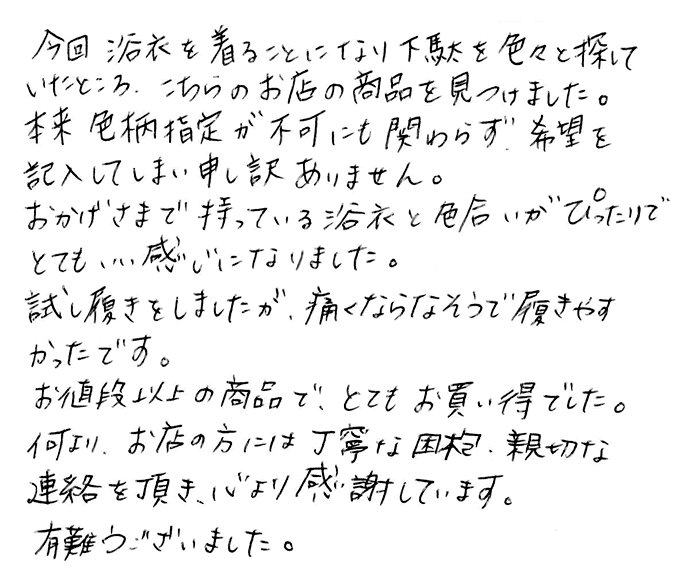 今回 浴衣を着ることになり下駄を色々と探して
いたところ、こちらのお店の商品を見つけました。
本来 色柄指定が不可にも関わらず、希望を
記入してしまい申し訳ありません。
おかげさまで持っている浴衣と色合いがぴったりで
とてもいい感じになりました。
試し履きをしましたが、痛くならなそうで履きやす
かったです。
お値段以上の商品で、とてもお買い得でした。
何より、お店の方には丁寧な困枹、親切な
連絡を頂き、心より感謝しています。
有難うございました。